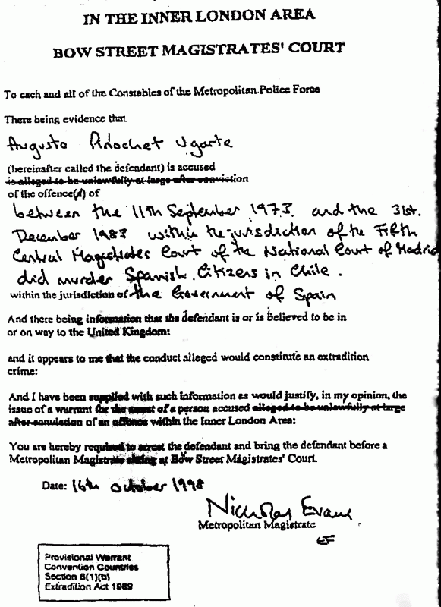 IN THE INNER LONDON AREA
BOW STREET MAGISTRATES' COURT
To each and all of the Constables of the Metropolitan Police Force
There being evidence that
Augusto Pinochet Ugarte
(hereinafter called the defendant) is accused
is alleged to be unlawfully at large after conviction
of the offence(s) of
between the 11th September 1973 and the 31st
December 1983 within the jurisdiction of the Fifth
Central Magistrates Court of the National Court of Madrid
did murder Spanish Citizens in Chile.
within the jurisdiction of the Government of Spain
And there being information that the defendant is or is believed to be in
or on way to the United Kingdom:
and it appears to me that the conduct alleged would constitute an extradition
crime:
And I have been supplied with such information as would justify, in my opinion, the
issue of a warrant for the arrest of a person accused alleged to be unlawfully at large
after conviction of an offence within the Inner London Area:
You are hereby required to arrest the defendant and bring the defendant before a
Metropolitan Magistrate sitting at Bow Street Magistrates' Court.
Date: 16th October 1998
Nicholas Evans
Metropolitan Magistrate
Provisional Warrant
Convention Countries
Section 8(1)(b)
Extradition Act 1989